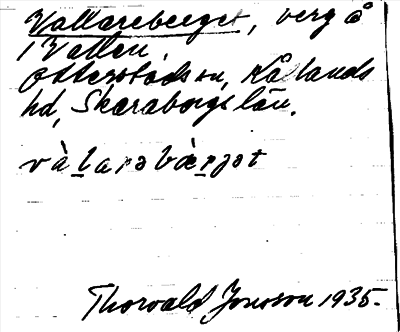 Vallareberget, berg å
1 Vallen,
Otterstads sn, Kållands
hd, Skaraborgs län.
vàlarəbærjət
Thorvald Jonsson 1935.